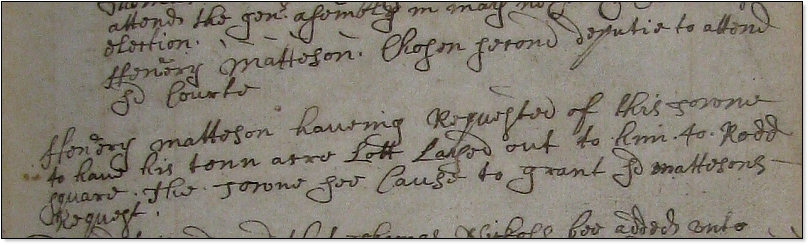 attend the gen: asembly in may n
election.
Henery Matteson. Chosen second deputie to attend
sd Courte
Henery matteson haveing Requested of this towne
to have his tenn acre Lott Layed out to him. 40. Rodd
square. The towne see Cause to grant sd mattesons
Request.
bee added unto